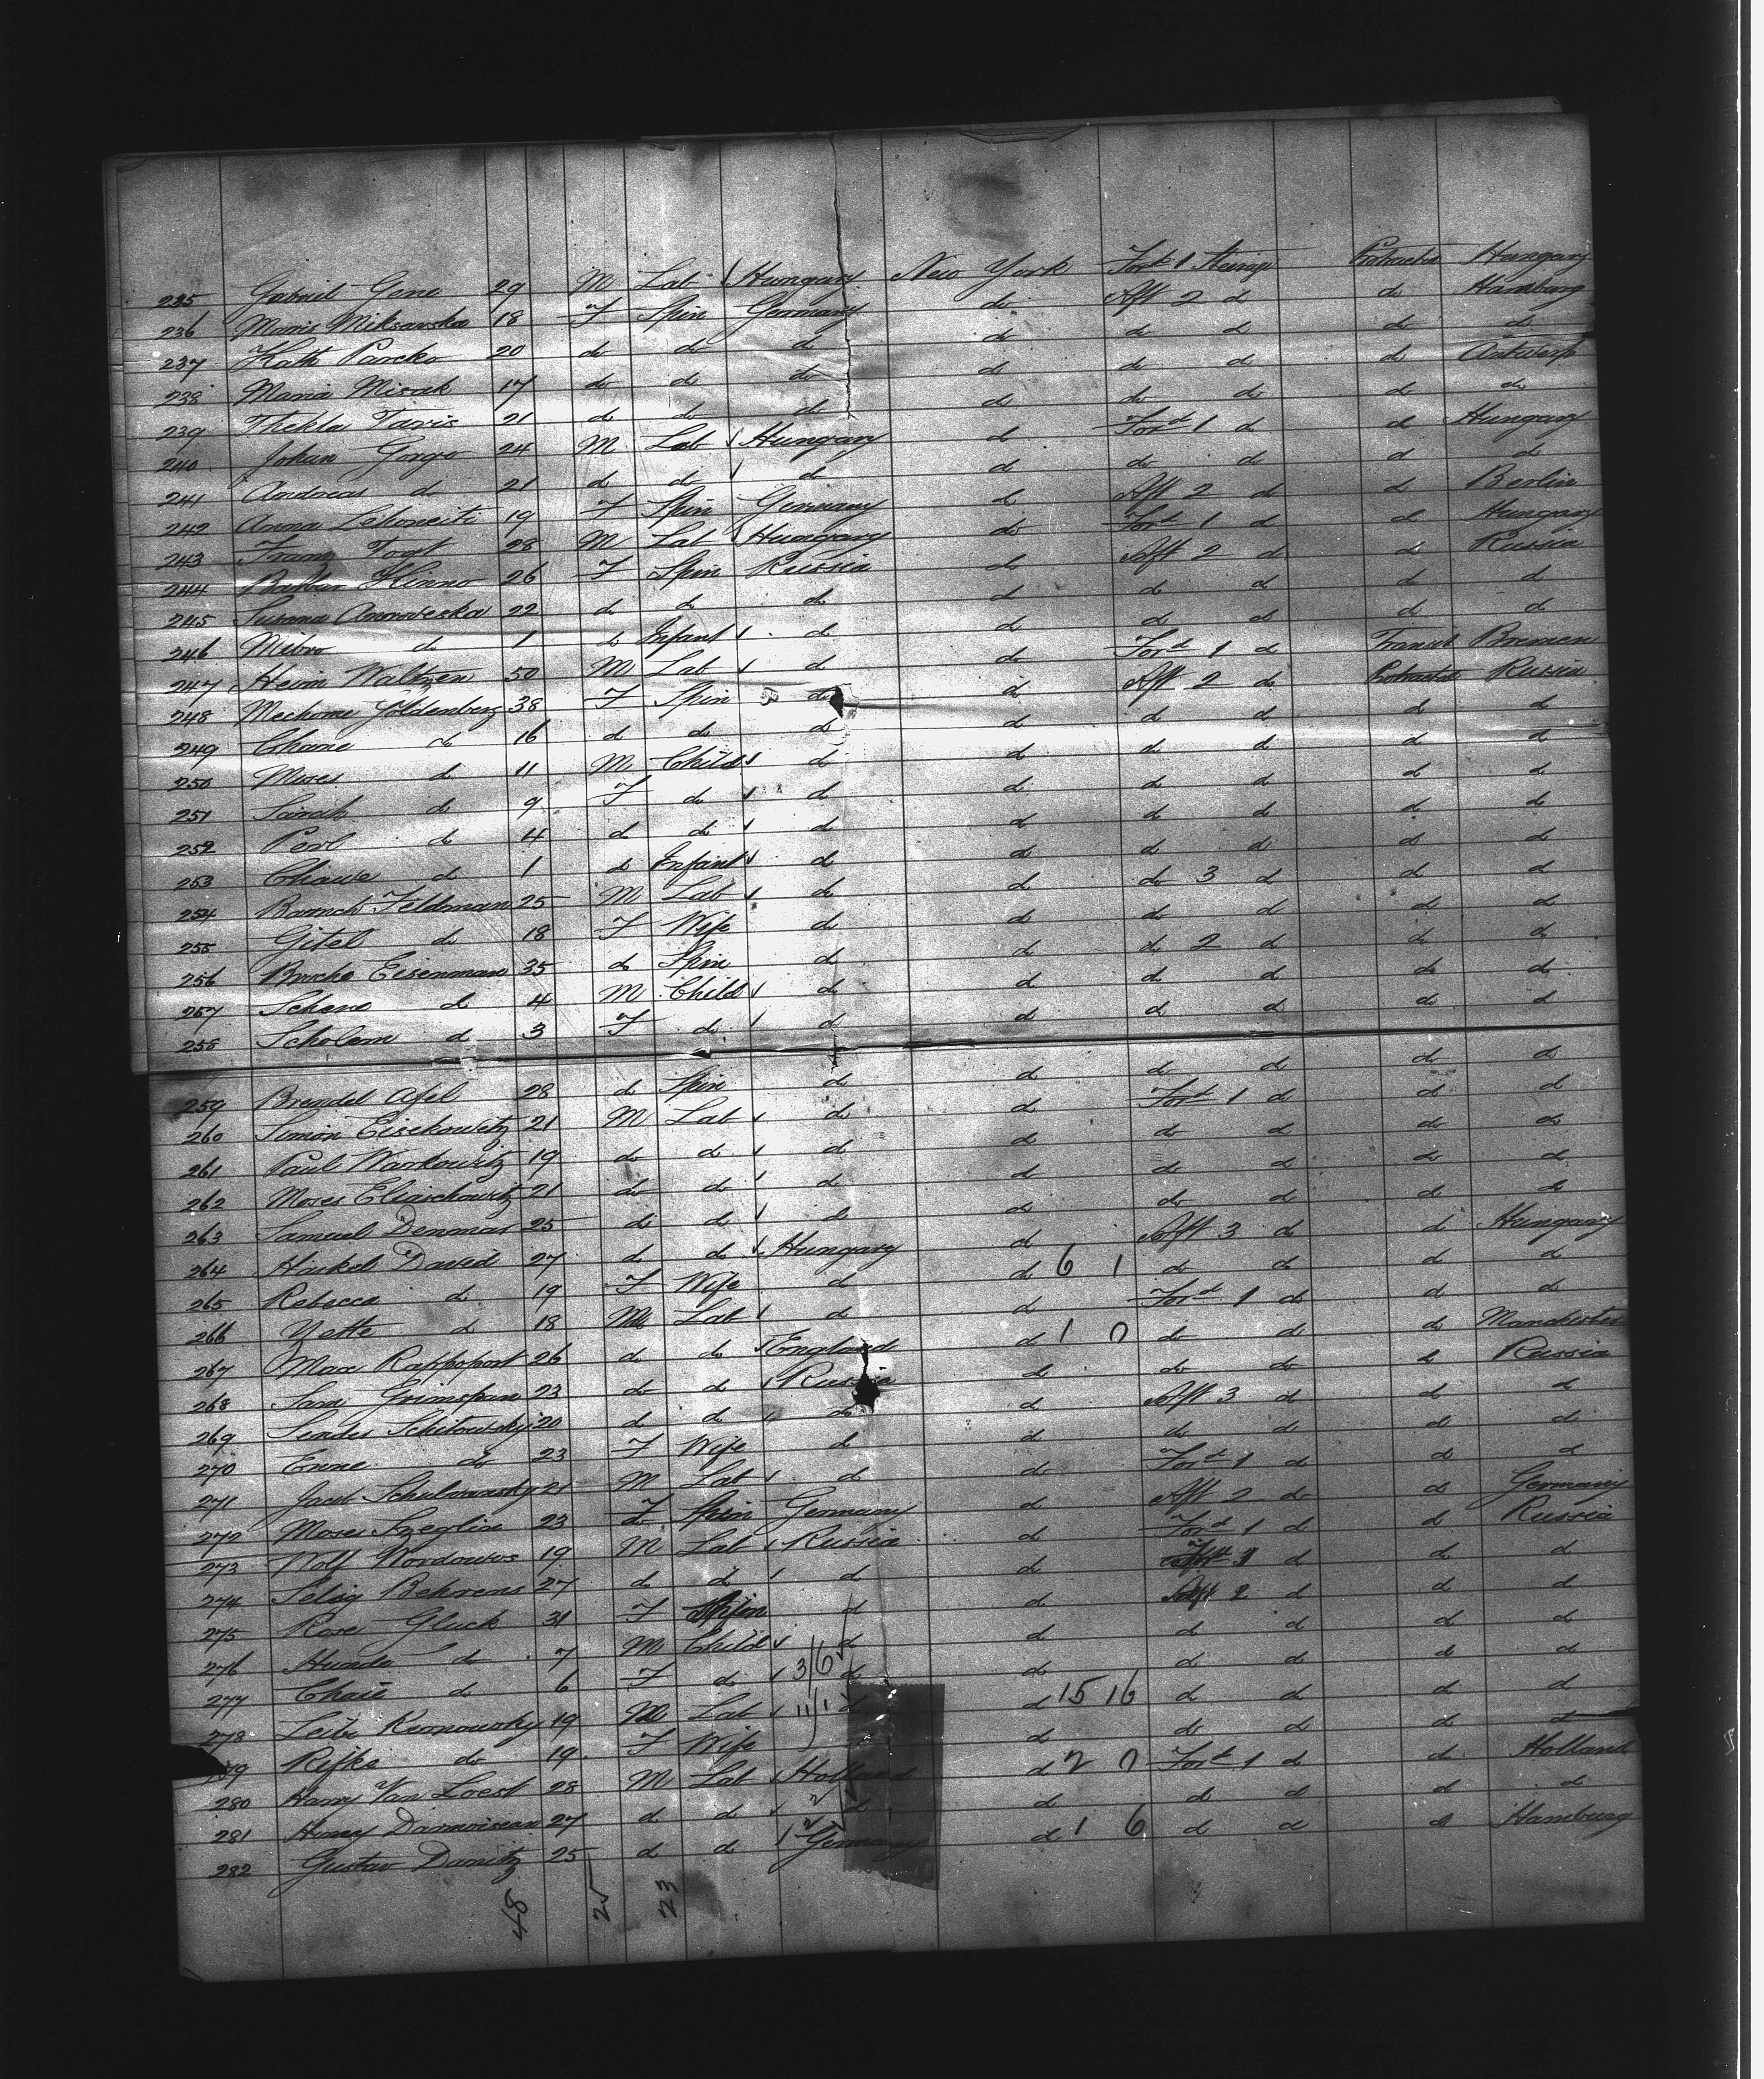 235 Gabriel Gene 29 M Lab Hungary New York For'd 1 Steerage Protracted Hungary
236 Maris Miksavska 18 F Spin Germany do Aft 2 do do Hamburg
237 Kath Parcko 20 do do do do do do do do
238 Maria Misak 17 do do do do do do do Antwerp
239 Thekla Taris 21 do do do do do do do do
240 Johan Gorgo 24 M Lab Hungary do For'd 1 do do Hungary
241 Andreas do 21 do do do do do do do do
242 Anna 19 F Spin Germany do Aft 2 do do Berlin
243 Franz Togt 28 M Lab Hungary do For'd 1 do do Hungary
244 Barbar Hinno 26 F Spin Russia do Aft 2 do do Russia
245 Susana 22 do do do do do do do do
246 do 1 do Infant do do do do do do
247 Heim Waltzen 50 M Lab do do For'd 1 do Transit Bremen
248 Mechome Goldenberg 38 F Spin do do Aft 2 do Protracted Russia
249 Chane do 16 do do do do do do do do
250 Moses do 11 M Child do do do do do do
251 Sarah do 9 F do do do do do do do
252 Perl do 4 do do do do do do do do
253 Chawe do 1 do Infant do do do do do do
254 Baruch Feldman 25 M Lab do do do 3 do do do
255 Gitel do 18 F Wife do do do do do do
256 Broche Eisenman 35 do Spin do do do 2 do do do
257 Schene do 4 M Child do do do do do do
258 Scholem do 3 F do do do do do do do
259 Brendel Apel 28 do Spin do do do do do do
260 Simon Eisikowitz 21 M Lab do do For'd 1 do do do
261 Paul Warkowitz 19 do do do do do do do do
262 Moses Eliaschowitz 21 do do do do do do do do
263 Samuel Denmar 25 do do do do do do do do
264 Haskel David 27 do do Hungary do Aft 3 do do Hungary
265 Rebecca do 19 F Wife do do 6 1 do do do do
266 Yette do 18 M Lab do do For'd 1 do do do
267 Max Rappoport 26 do do England do 1 0 do do do Manchester
268 Sam Grinspan 23 do do Russia do do do do Russia
269 Sender Schitowsky 20 do do do do Aft 3 do do do
270 Enne do 23 F Wife do do do do do do
271 Jacob Schulmansky 21 M Lab do do For'd 1 do do do
272 Moses Szeglin 23 F Spin Germany do Aft 2 do do Germany
273 Wolf 19 M Lab Russia do For'd 1 do do Russia
274 Selig Behrens 27 do do do do do do do
275 Rose Gluck 31 F Spin do do Aft 2 do do do
276 Hunde do 7 M Child do do do do do do
277 Chaie do 6 F do 3/6 do do do do do do
278 Leib Kronowsky 19 M Lab 11/1 do do 15 16 do do do do
279 Rifke do 19 F Wife do do do do do
280 Harry Van Loest 28 M Lab Holland do 2 0 For'd 1 do do Holland
281 Henry 27 do do do do do do do do
282 Gustav Danitz 25 do do Germany do 1 6 do do do Hamburg
48 25 23